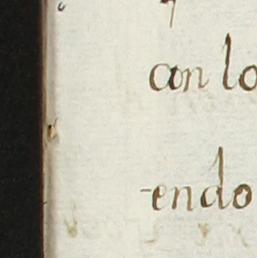 con lo
-endo